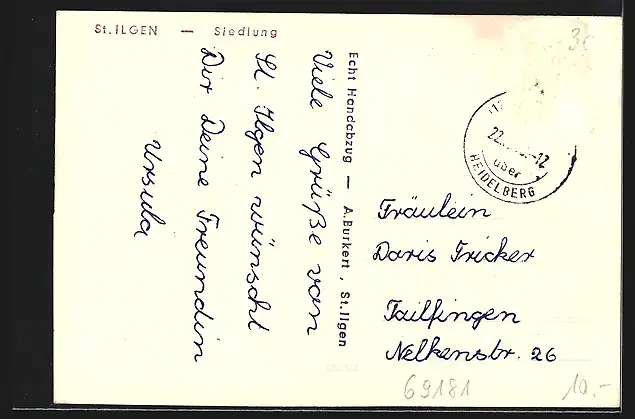 St. ILGEN — Siedlung
Viele Grüße von
St. Ilgen wünscht
Dir Deine Freundin
Ursula
Echt Handabzug — A. Burkert, St. Ilgen
über
HEIDELBERG
Fräulein
Doris Fricker
Tailfingen
Nelkenstr. 26
69181
10,-